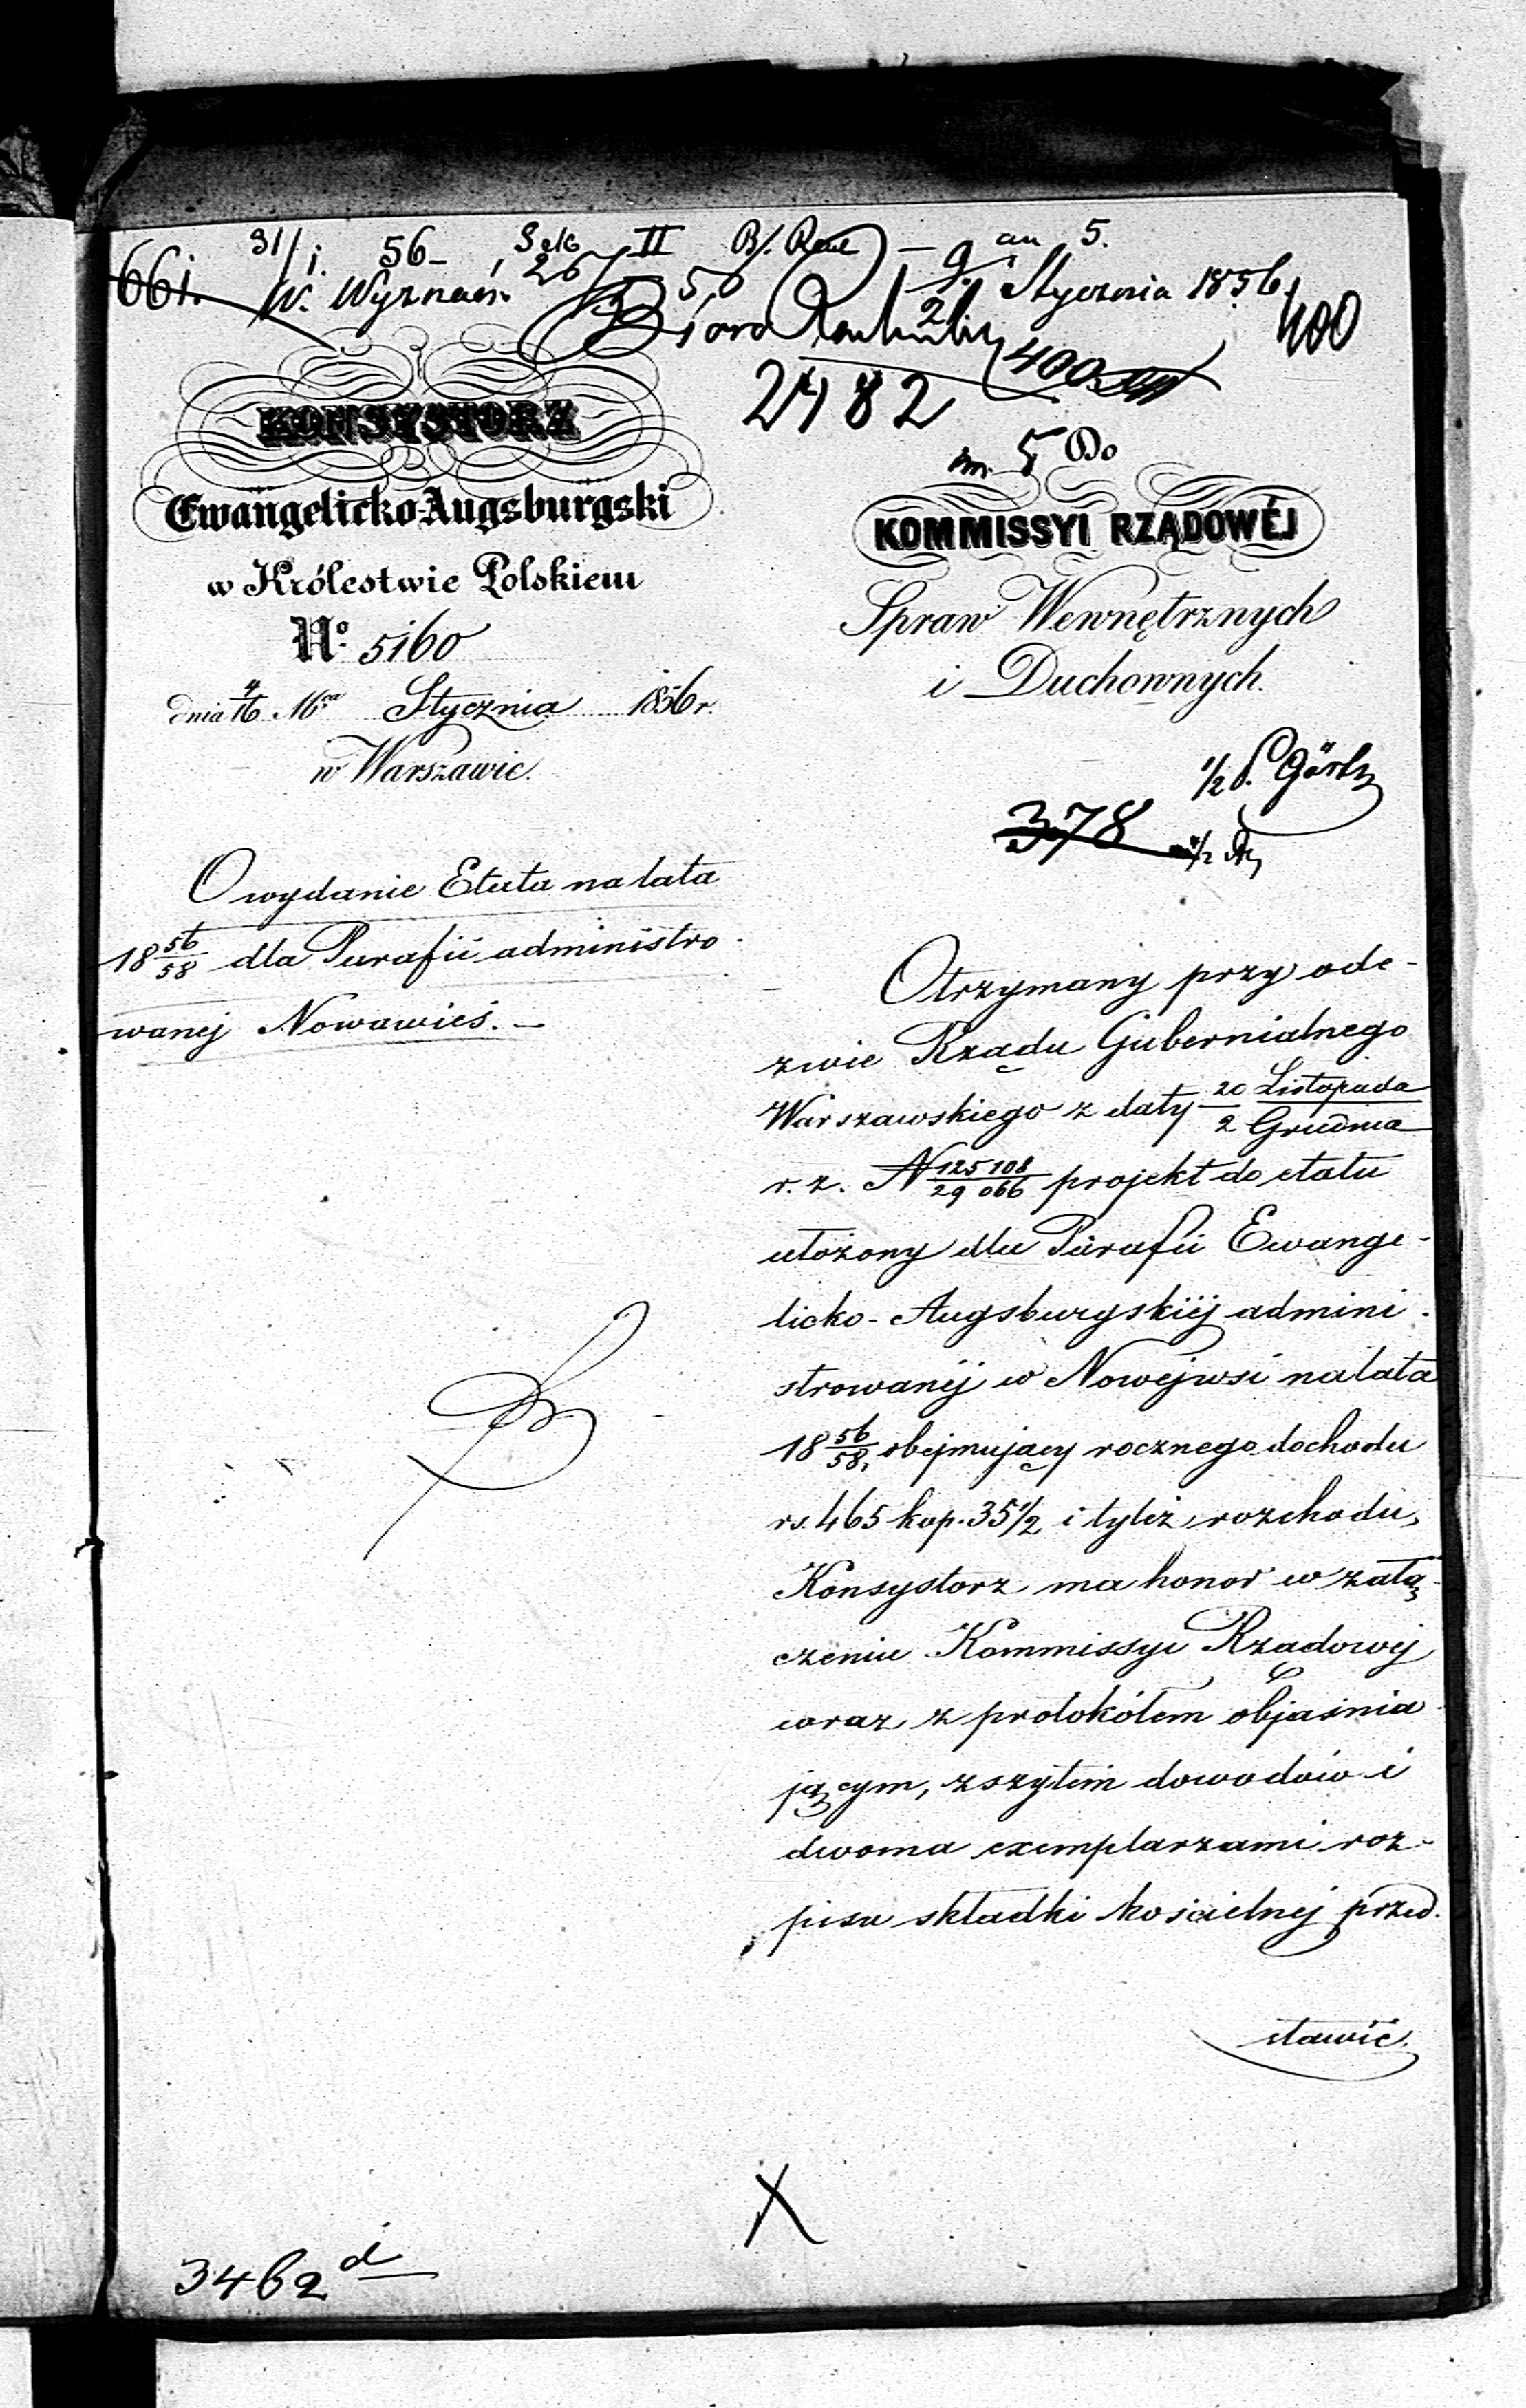 31/1. 56 – II – an 5.
661. W. Wyznań. 26/ 50 9/21 Stycznia 1856. 400
Biuro
2482 400
5 Do
KONSYSTORZ
Ewangelicko-Augsburgski
w Królestwie Polskiem
No. 5160
dnia 4/16 Mca Stycznia 1856 r.
w Warszawie.
KOMMISSYI RZĄDOWÉJ
Spraw Wewnętrznych
i Duchownych.
1/2 P. Görtz
378
O wydanie Etatu na lata
18 56/58 dla Parafii administro-
wanej Nowawieś. –
Otrzymany przy ode-
zwie Rządu Gubernialnego
Warszawskiego z daty 20 Listopada / 2 Grudnia
r. z. N 125108/29066 projekt do etatu
ułożony dla Parafii Ewange-
licko-Augsburgskiéj admini-
strowanéj w Nowejwsi na lata
18 56/58, obejmujący rocznego dochodu
rs. 465 kop. 35 1/2 i tyleż rozchodu,
Konsystorz ma honor w załą-
czeniu Kommissyi Rządowej
wraz z protokółem objaśnia-
jącym, zszytem dowodów i
dwoma exemplarzami roz-
pisu składki kościelnej przed-
stawić.
X
3462 d